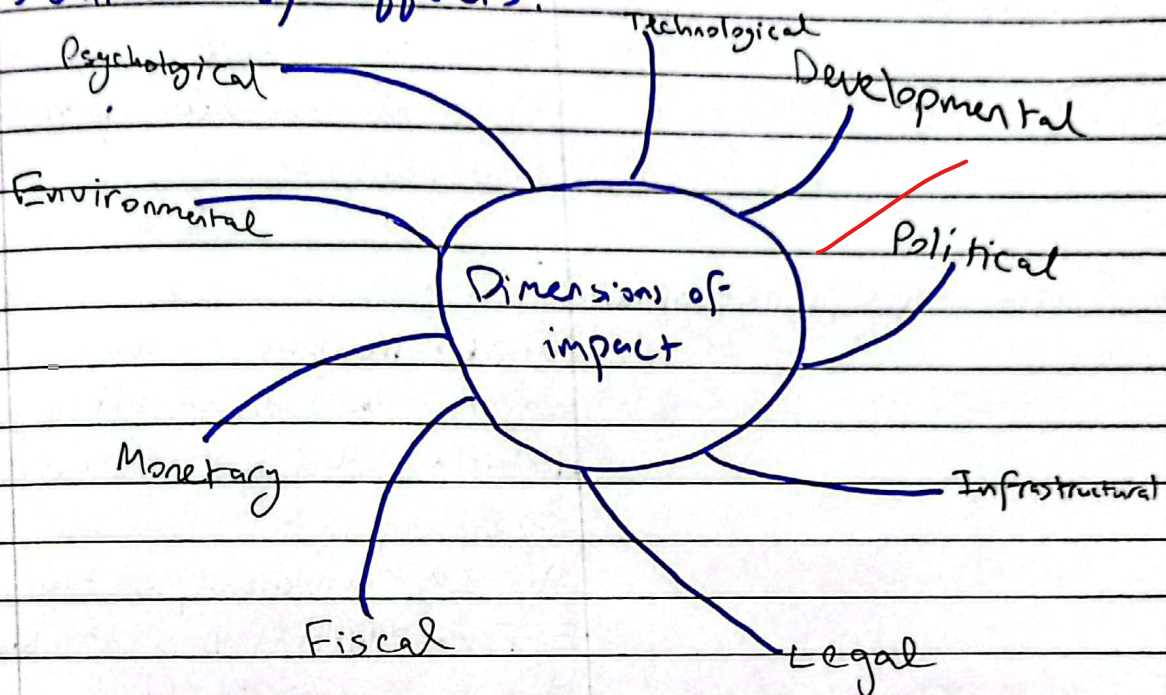 Technological
Psychological
Developmental
Environmental
Political
Dimensions of
impact
Monetary
Infrastructural
Fiscal
Legal